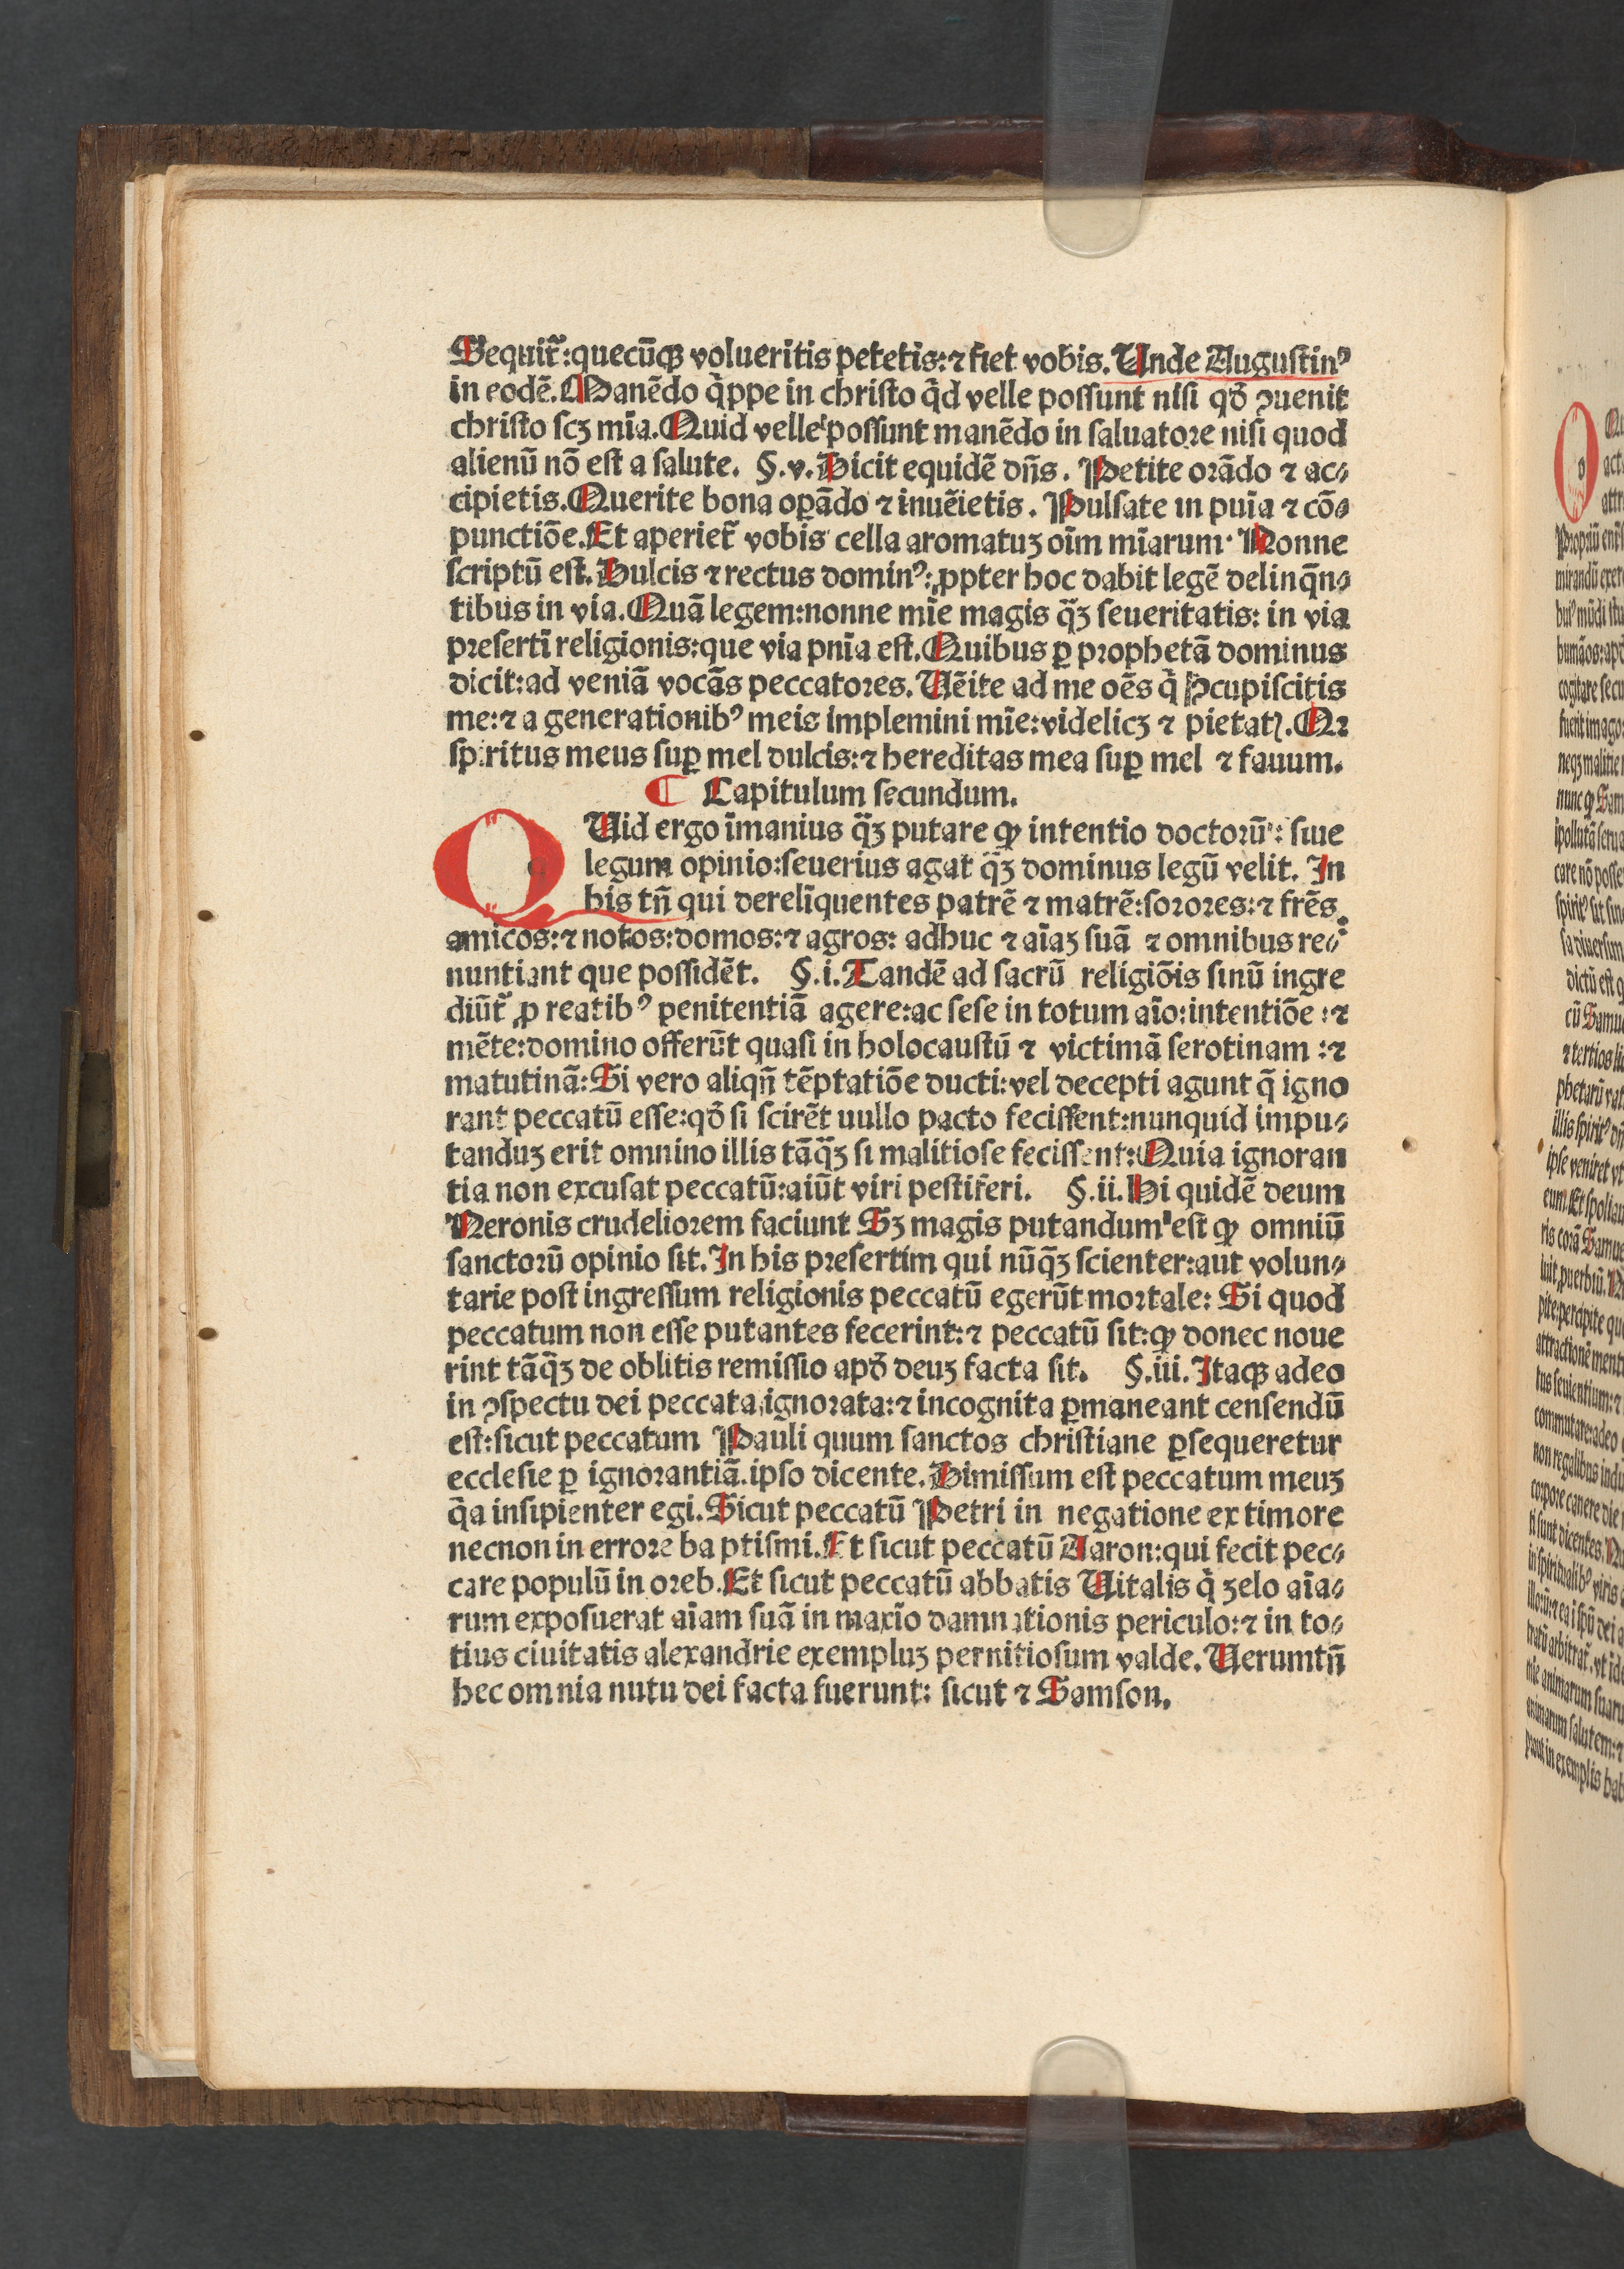 Sequit᷑:quecūqꝫ volueritis petetis:⁊ fiet vobis. Unde Augustinꝰ
in eodē. Manēdo q̇ppe in christo q̇d velle possunt nisi qð ꝯuenit
christo scꝫ mīa. Quid velle possunt manēdo in saluatore nisi quod
alienū nō est a salute. §.v. Dicit equidē dn̄s. Petite orādo ⁊ ac⸗
cipietis. Querite bona oꝑādo ⁊ inuēietis. Pulsate in pnīa ⁊ cō⸗
punctiōe. Et aperiet᷑ vobis cella aromatuꝫ oīm mīarum. Nonne
scriptū est. Dulcis ⁊ rectus dominꝰ: ꝓpter hoc dabit legē delinq̄n⸗
tibus in via. Quā legem:nonne mīe magis q̄ꝫ seueritatis: in via
presertī religionis:que via pnīa est. Quibus ꝑ prophetā dominus
dicit:ad veniā vocās peccatores. Uēite ad me oēs q̇ ꝯcupiscitis
me:⁊ a generationibꝰ meis implemini mīe:videlicꝫ ⁊ pietatꝭ. Qꝛ
spiritus meus suꝑ mel dulcis:⁊ hereditas mea suꝑ mel ⁊ fauum.
¶ Capitulum secundum.
QUid ergo īmanius q̄ꝫ putare ꝙ intentio doctorū: siue
legum opinio:seuerius agat q̄ꝫ dominus legū velit. In
his tn̄ qui derelīquentes patrē ⁊ matrē:sorores:⁊ frēs
amicos:⁊ notos:domos:⁊ agros: adhuc ⁊ aīaꝫ suā ⁊ omnibus re⸗
nuntiant que possidēt. §.i. Tandē ad sacrū religiōis sinū ingre
diūt᷑ ꝓ reatibꝰ penitentiā agere:ac sese in totum aīo:intentiōe:⁊
mēte:domino offerūt quasi in holocaustū ⁊ victimā serotinam:⁊
matutinā: Si vero aliqn̄ tēptatiōe ducti:vel decepti agunt q̄ igno
rant peccatū esse:qð si scirēt uullo pacto fecissent:nunquid impu⸗
tanduꝫ erit omnino illis tāq̄ꝫ si malitiose fecissent: Quia ignoran
tia non excusat peccatū:aiūt viri pestiferi. §.ii. Hi quidē deum
Neronis crudeliorem faciunt Sꝫ magis putandum est ꝙ omniū
sanctorū opinio sit. In his presertim qui nūq̄ꝫ scienter:aut volun⸗
tarie post ingressum religionis peccatū egerūt mortale: Si quod
peccatum non esse putantes fecerint:⁊ peccatū sit:ꝙ donec noue
rint tāq̄ꝫ de oblitis remissio apð deuꝫ facta sit. §.iii. Itaqꝫ adeo
in ꝯspectu dei peccata ignorata:⁊ incognita ꝑmaneant censendū
est:sicut peccatum Pauli quum sanctos christiane ꝑsequeretur
ecclesie ꝑ ignorantiā. ipso dicente. Dimissum est peccatum meuꝫ
q̇a insipienter egi. Sicut peccatū Petri in negatione ex timore
necnon in errore ba ptismi. Et sicut peccatū Aaron:qui fecit pec⸗
care populū in oreb. Et sicut peccatū abbatis Uitalis q̇ zelo aīa⸗
rum exposuerat aīam suā in maxīo damnationis periculo:⁊ in to⸗
tius ciuitatis alexandrie exempluꝫ pernitiosum valde. Uerumtn̄
hec omnia nutu dei facta fuerunt: sicut ⁊ Samson.